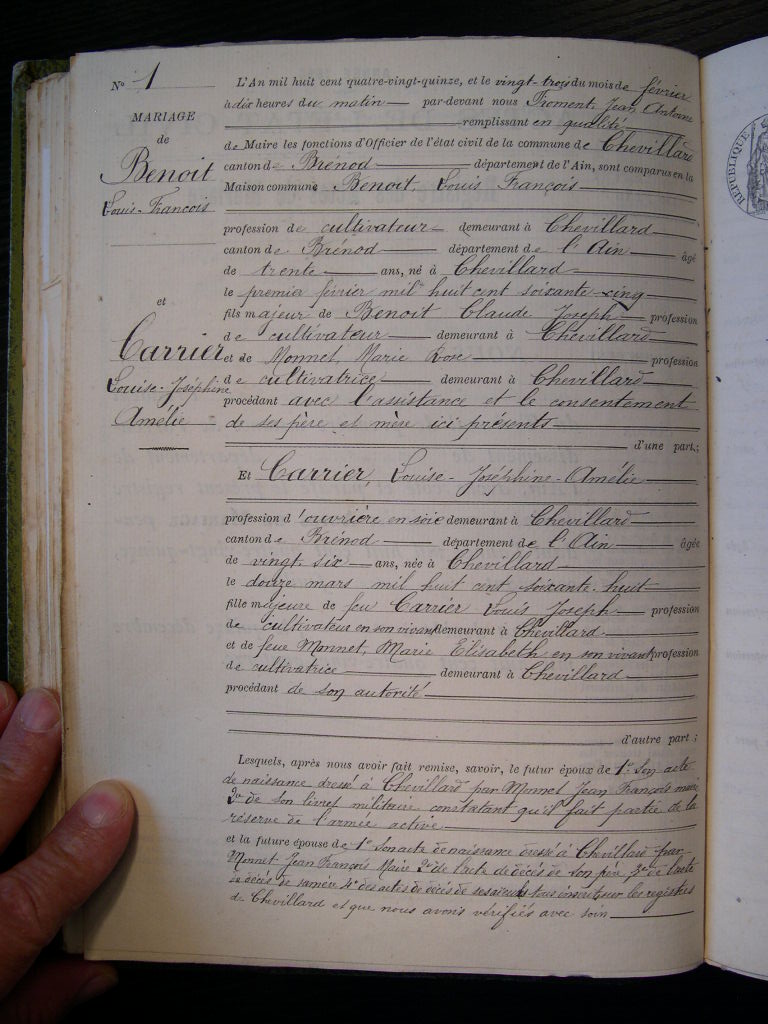 N° 1
MARIAGE
de
Benoit
Louis-François
et
Carrier
Louise-Joséphine
Amélie
L'An mil huit cent quatre-vingt-quinze, et le vingt-trois du mois de février
à dix heures du matin par-devant nous Froment, Jean Antoine
remplissant en qualité
de Maire les fonctions d'Officier de l'état civil de la commune de Chevillard
canton de Brénod département de l'Ain, sont comparus en la
Maison commune Benoit, Louis François
profession de cultivateur demeurant à Chevillard
canton de Brénod département de l'Ain âgé
de trente ans, né à Chevillard
le premier février mil huit cent soixante-cinq
fils majeur de Benoit Claude Joseph profession
de cultivateur demeurant à Chevillard
et de Monnet, Marie Rose profession
de cultivatrice demeurant à Chevillard
procédant avec l'assistance et le consentement
de ses père et mère ici présents
d'une part;
Et Carrier, Louise-Joséphine-Amélie
profession d'ouvrière en soie demeurant à Chevillard
canton de Brénod département de l'Ain âgée
de vingt-six ans, née à Chevillard
le douze mars mil huit cent soixante-huit
fille majeure de feu Carrier Louis Joseph profession
de cultivateur en son vivant demeurant à Chevillard
et de feue Monnet, Marie Elisabeth en son vivant profession
de cultivatrice demeurant à Chevillard
procédant de son autorité
d'autre part;
Lesquels, après nous avoir fait remise, savoir, le futur époux de 1° Son acte
de naissance dressé à Chevillard par Monnet Jean François maire
2° de son livret militaire constatant qu'il fait partie de la
réserve de l'armée active
et la future épouse de 1° Son acte de naissance dressé à Chevillard par
Monnet Jean François Maire 2° de l'acte de décès de son père 3° de l'acte
de décès de sa mère 4° des actes de décès de ses aïeuls tous inscrits sur les registres
de Chevillard et que nous avons vérifiés avec soin
RÉPUBLIQUE